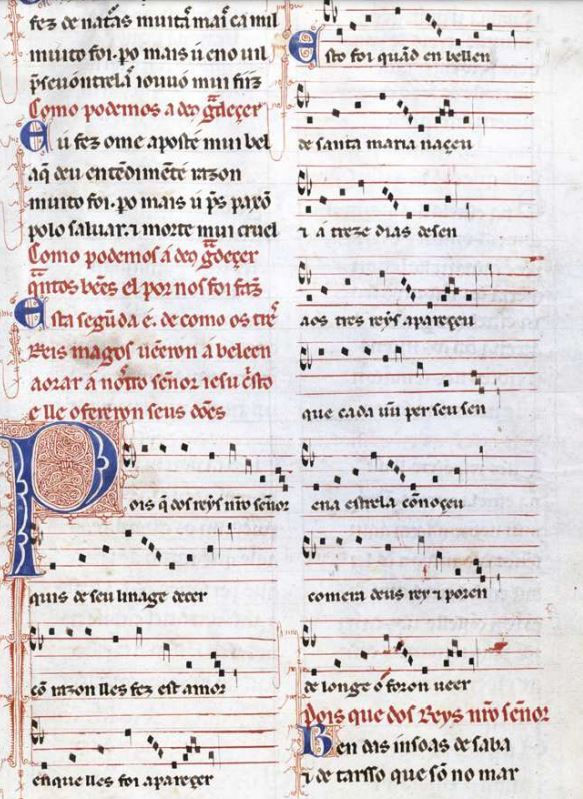 fez de natãs muitã mal ca mil
muito foi. po mais ú eno uil
Como podemos a deo gdeçer
E ú fez ome aposte mui bel
aq̃ deu entẽdimẽte razon
muito foi. po mais ú p̃s paxõ
polo saluar. ⁊ morte mui cruel
Como podemos á deo gdeçer
q̃ntos bẽes el por nos foi faz
Esta segũda é. de como os tre
Reis magos uẽeron á beleen
aorar á nostro señor iesu c̃sto
e lle ofereron seus dões
Pois q̃ dos reys nro señor
quis de seu linage decer
cõ razon lles fez est amor
enque lles foi apareçer
Esto foi quãd en belleen
de santa maria naçeu
⁊ á treze dias desen
aos tres reys apareçeu
que cada ũu per seu sen
ena estrela cõnoçeu
comera deus rey ⁊ poren
de longe ó foron ueer
Pois que dos Reys nro señor
Ben das insoas de saba
⁊ de tarsso que sõ no mar